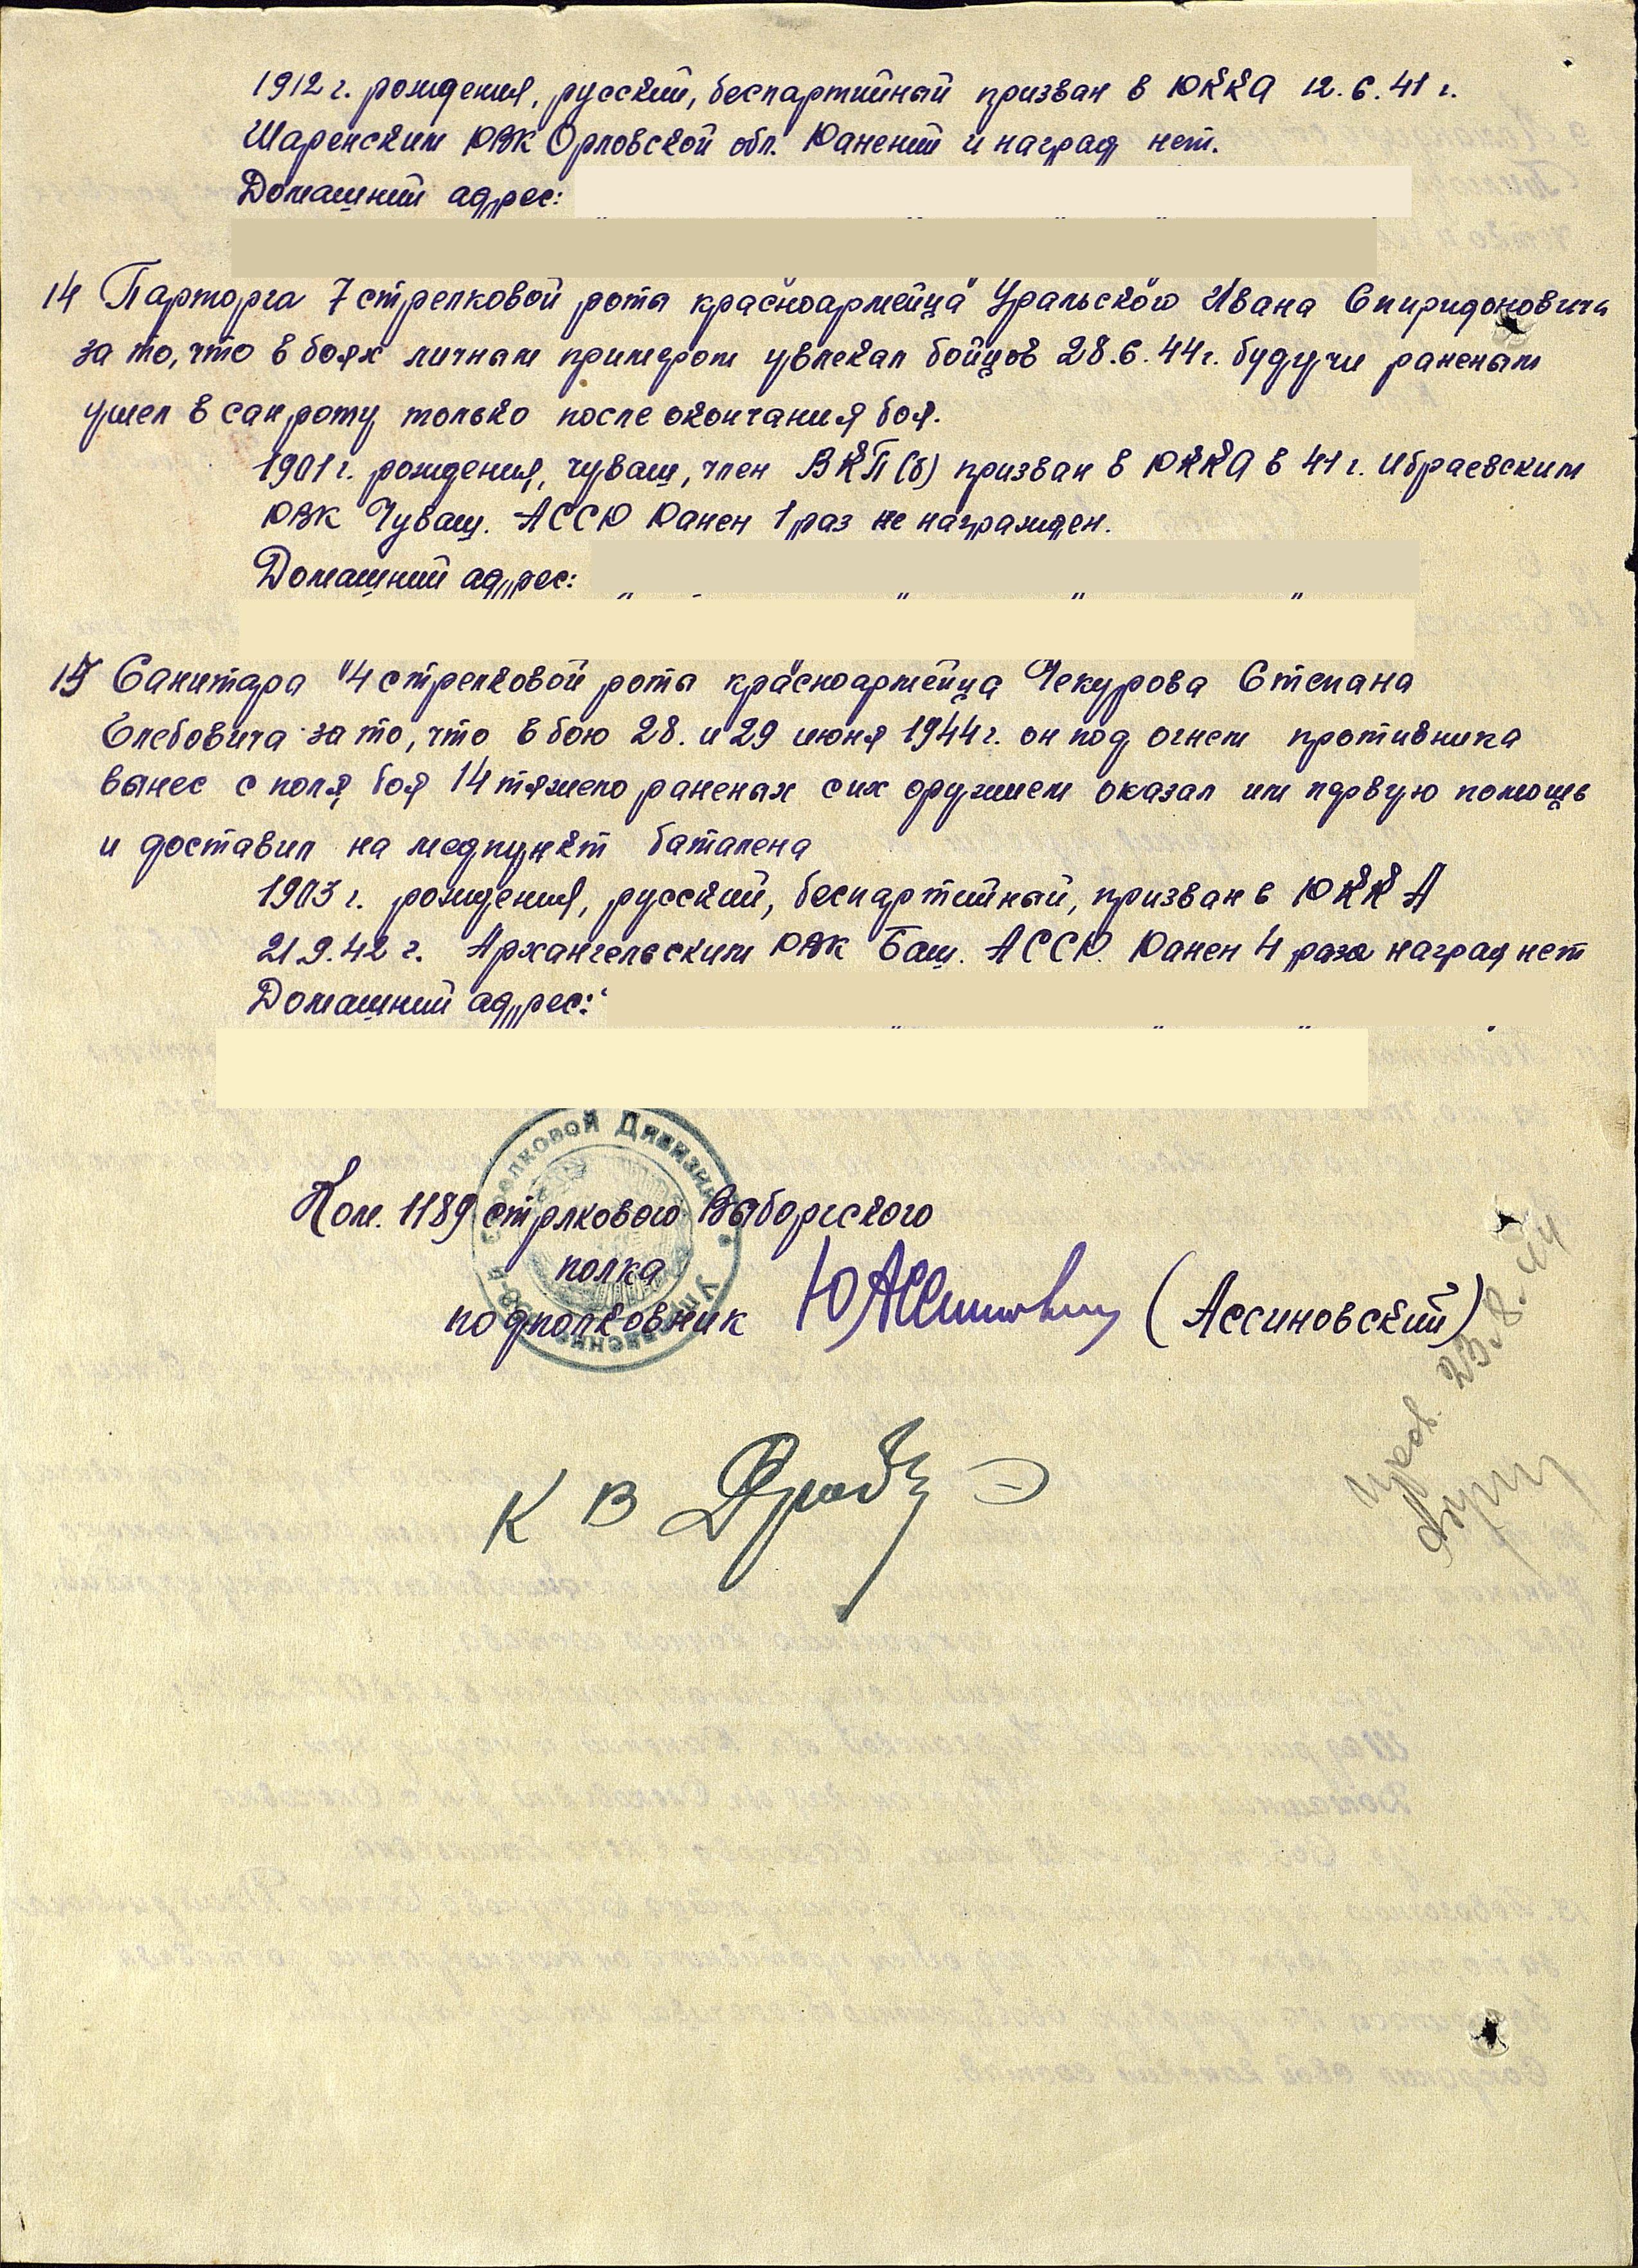 1912 г. рождения, русский, беспартийный призван в РККА 12.6.41 г.
Шаренским РВК Орловской обл. Ранений и наград нет.
Домашний адрес:
14 Парторга 7 стрелковой роты красноармейца Уральского Ивана Спиридоновича
за то, что в боях личным примером увлекал бойцов 28.6.44 г. будучи раненым
ушел в санроту только после окончания боя.
1901 г. рождения, чуваш, член ВКП(б) призван в РККА в 41 г. Ибраевским
РВК Чуваш. АССР Ранен 1 раз не награжден.
Домашний адрес:
15 Санитара 4 стрелковой роты красноармейца Чекурова Степана
Глебовича за то, что в бою 28. и 29 июня 1944 г. он под огнем противника
вынес с поля боя 14 тяжело раненых с их оружием оказал им первую помощь
и доставил на медпункт баталена
1903 г. рождения, русский, беспартийный, призван в РККА
21.9.42 г. Архангельским РВК Баш. АССР. Ранен 4 раза наград нет
Домашний адрес:
стрелковой Дивизии
Ком. 1189 стрлкового Выборгского
полка
подполковник (Ассиновский)
23.8.44
К В